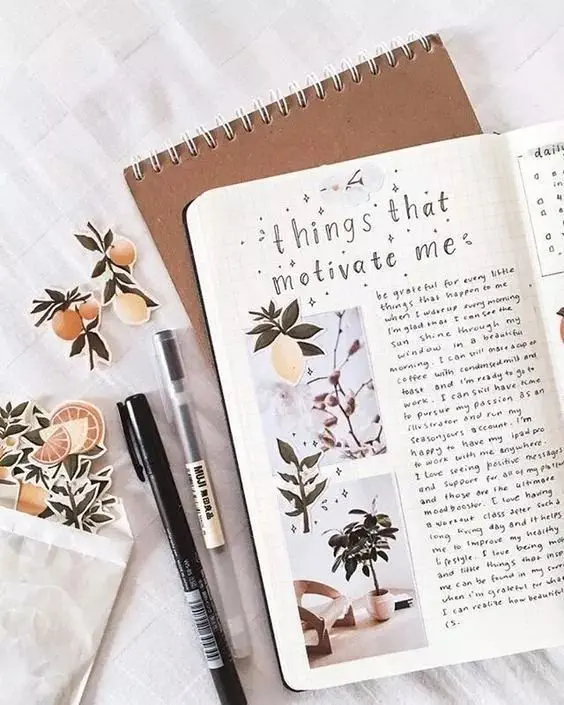 things that
motivate me
be grateful for every little
things that happen to me
when I wakeup every morning
i'm glad that I can see the
sun shine through my
window in a beautiful
morning. I can still make a cup of
coffee with condensed milk and
toast and i'm ready to go
work. I can still have time
to pursue my passion as an
illustrator and run my
seasonyours account. i'm
happy to have my ipad pro
to work with me anywhere.
I love seeing positive messages
and support for all of my
and those are the ultimate
mood booster. I love having
a workout class after such a
long tiring day and it helps
me to improve my healthy
lifestyle. I love being
and little things that
me can be found in my
when i'm grateful for
I can realize how beautiful
is.
daily
MUJI 無印良品